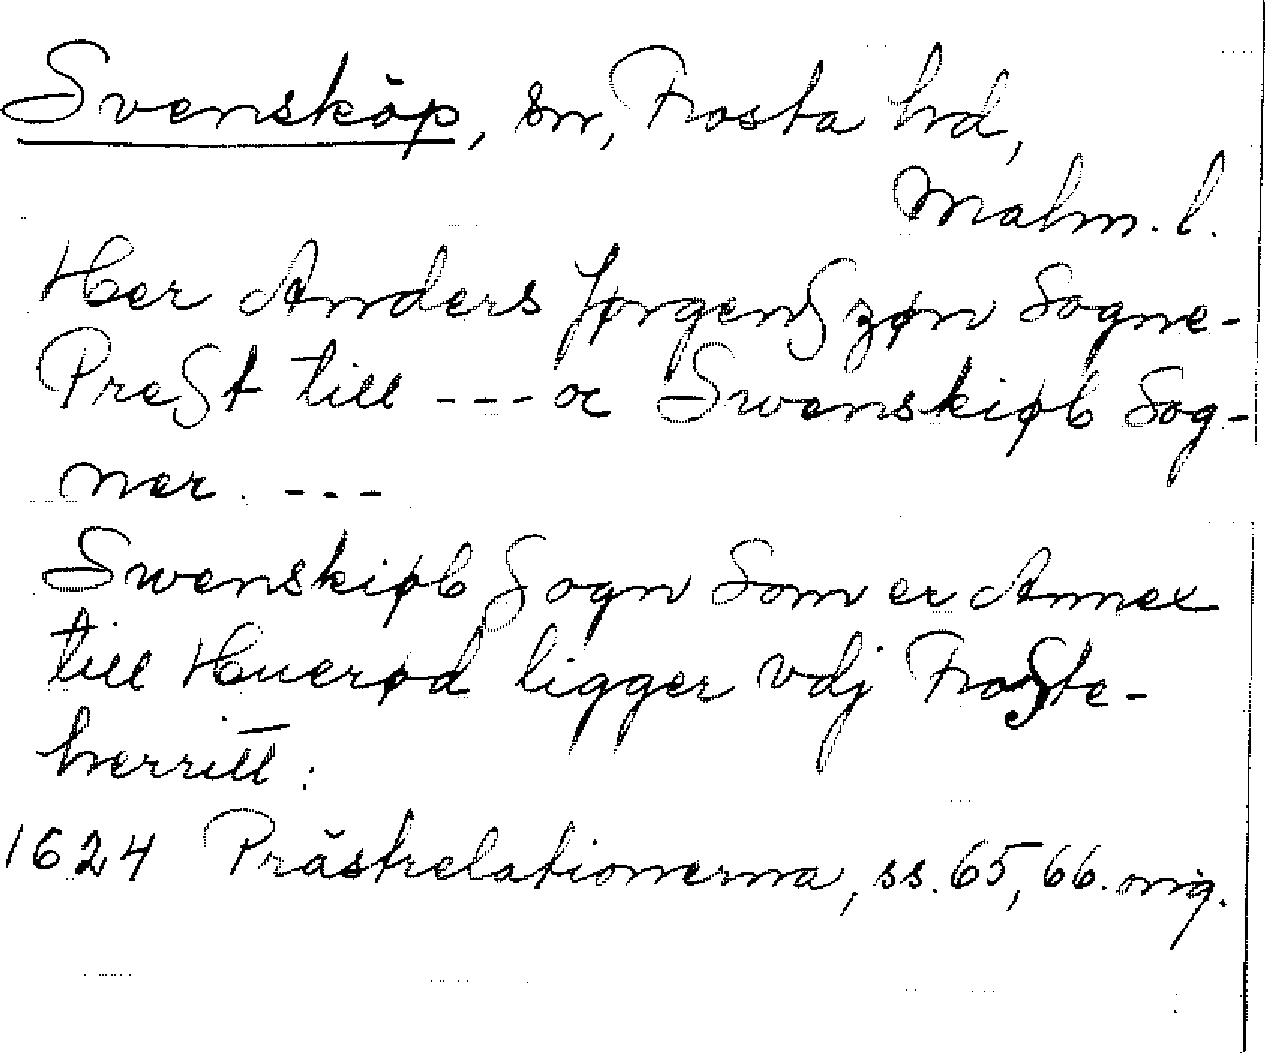 Svensköp, sn, Frosta hd,
Malm. l.
Her Anders JørgenSzøn Sogne-
PreSt till --- oc Swenskiøb Sog-
ner. ---
Swenskiøb Sogn Som er Annex
till Huerød ligger vdj FroSte-
herritt.
1624 Prästrelationerna, ss. 65, 66. orig.